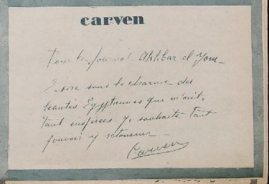 carven
Pour le journal Akhbar el Yom
sous le charme des
beautés Egyptiennes que m'ont
tant inspirées. Je souhaite tant
pouvoir y retourner
Carven